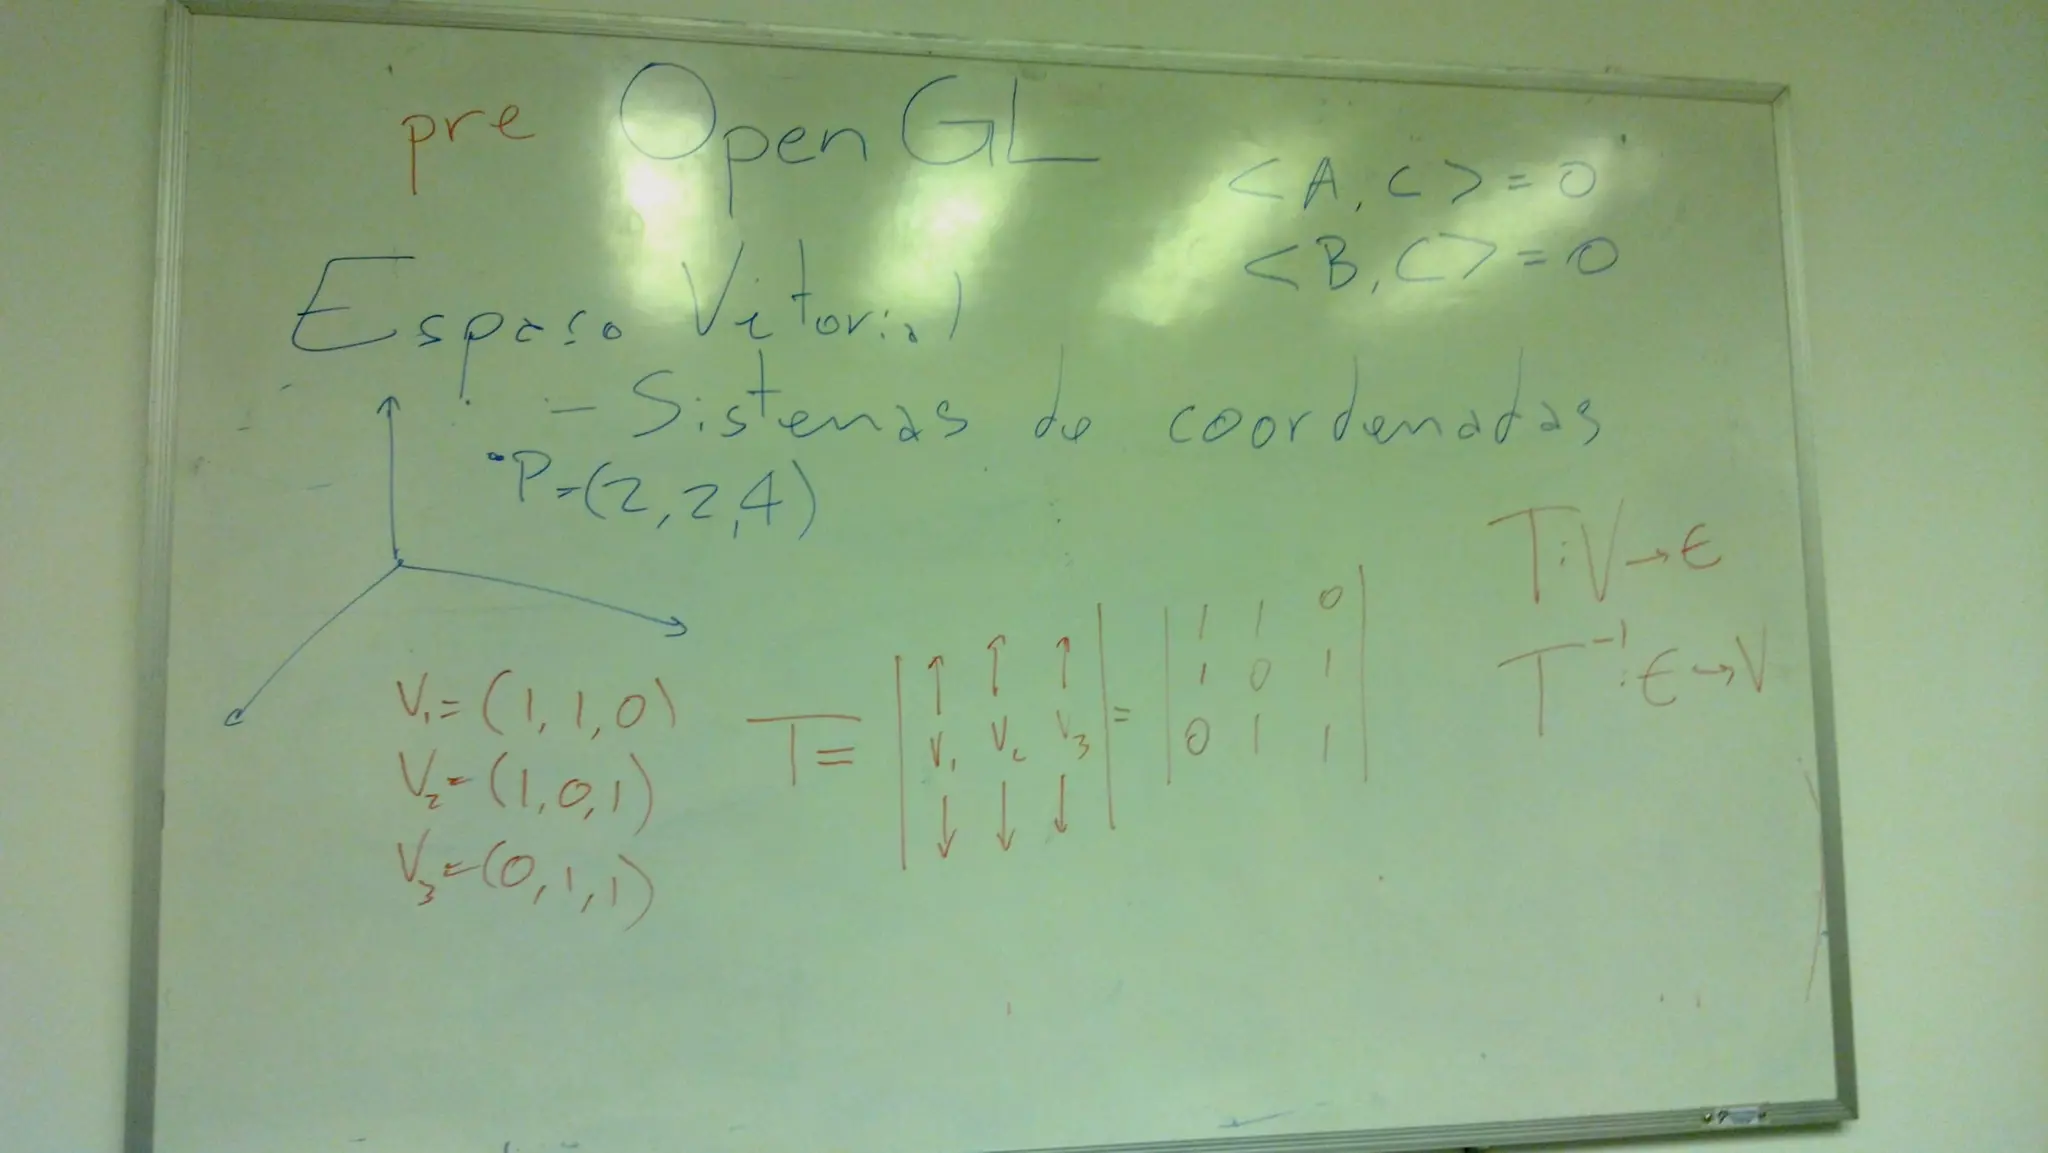 pre OpenGL
<A, C> = 0
<B, C> = 0
Espaço Vetorial
- Sistemas de coordenadas
P=(2,2,4)
T:V→E
T⁻¹:E→V
V₁=(1,1,0)
V₂=(1,0,1)
V₃=(0,1,1)
T= | V₁ V₂ V₃ | = | 1 1 0
1 0 1
0 1 1 |